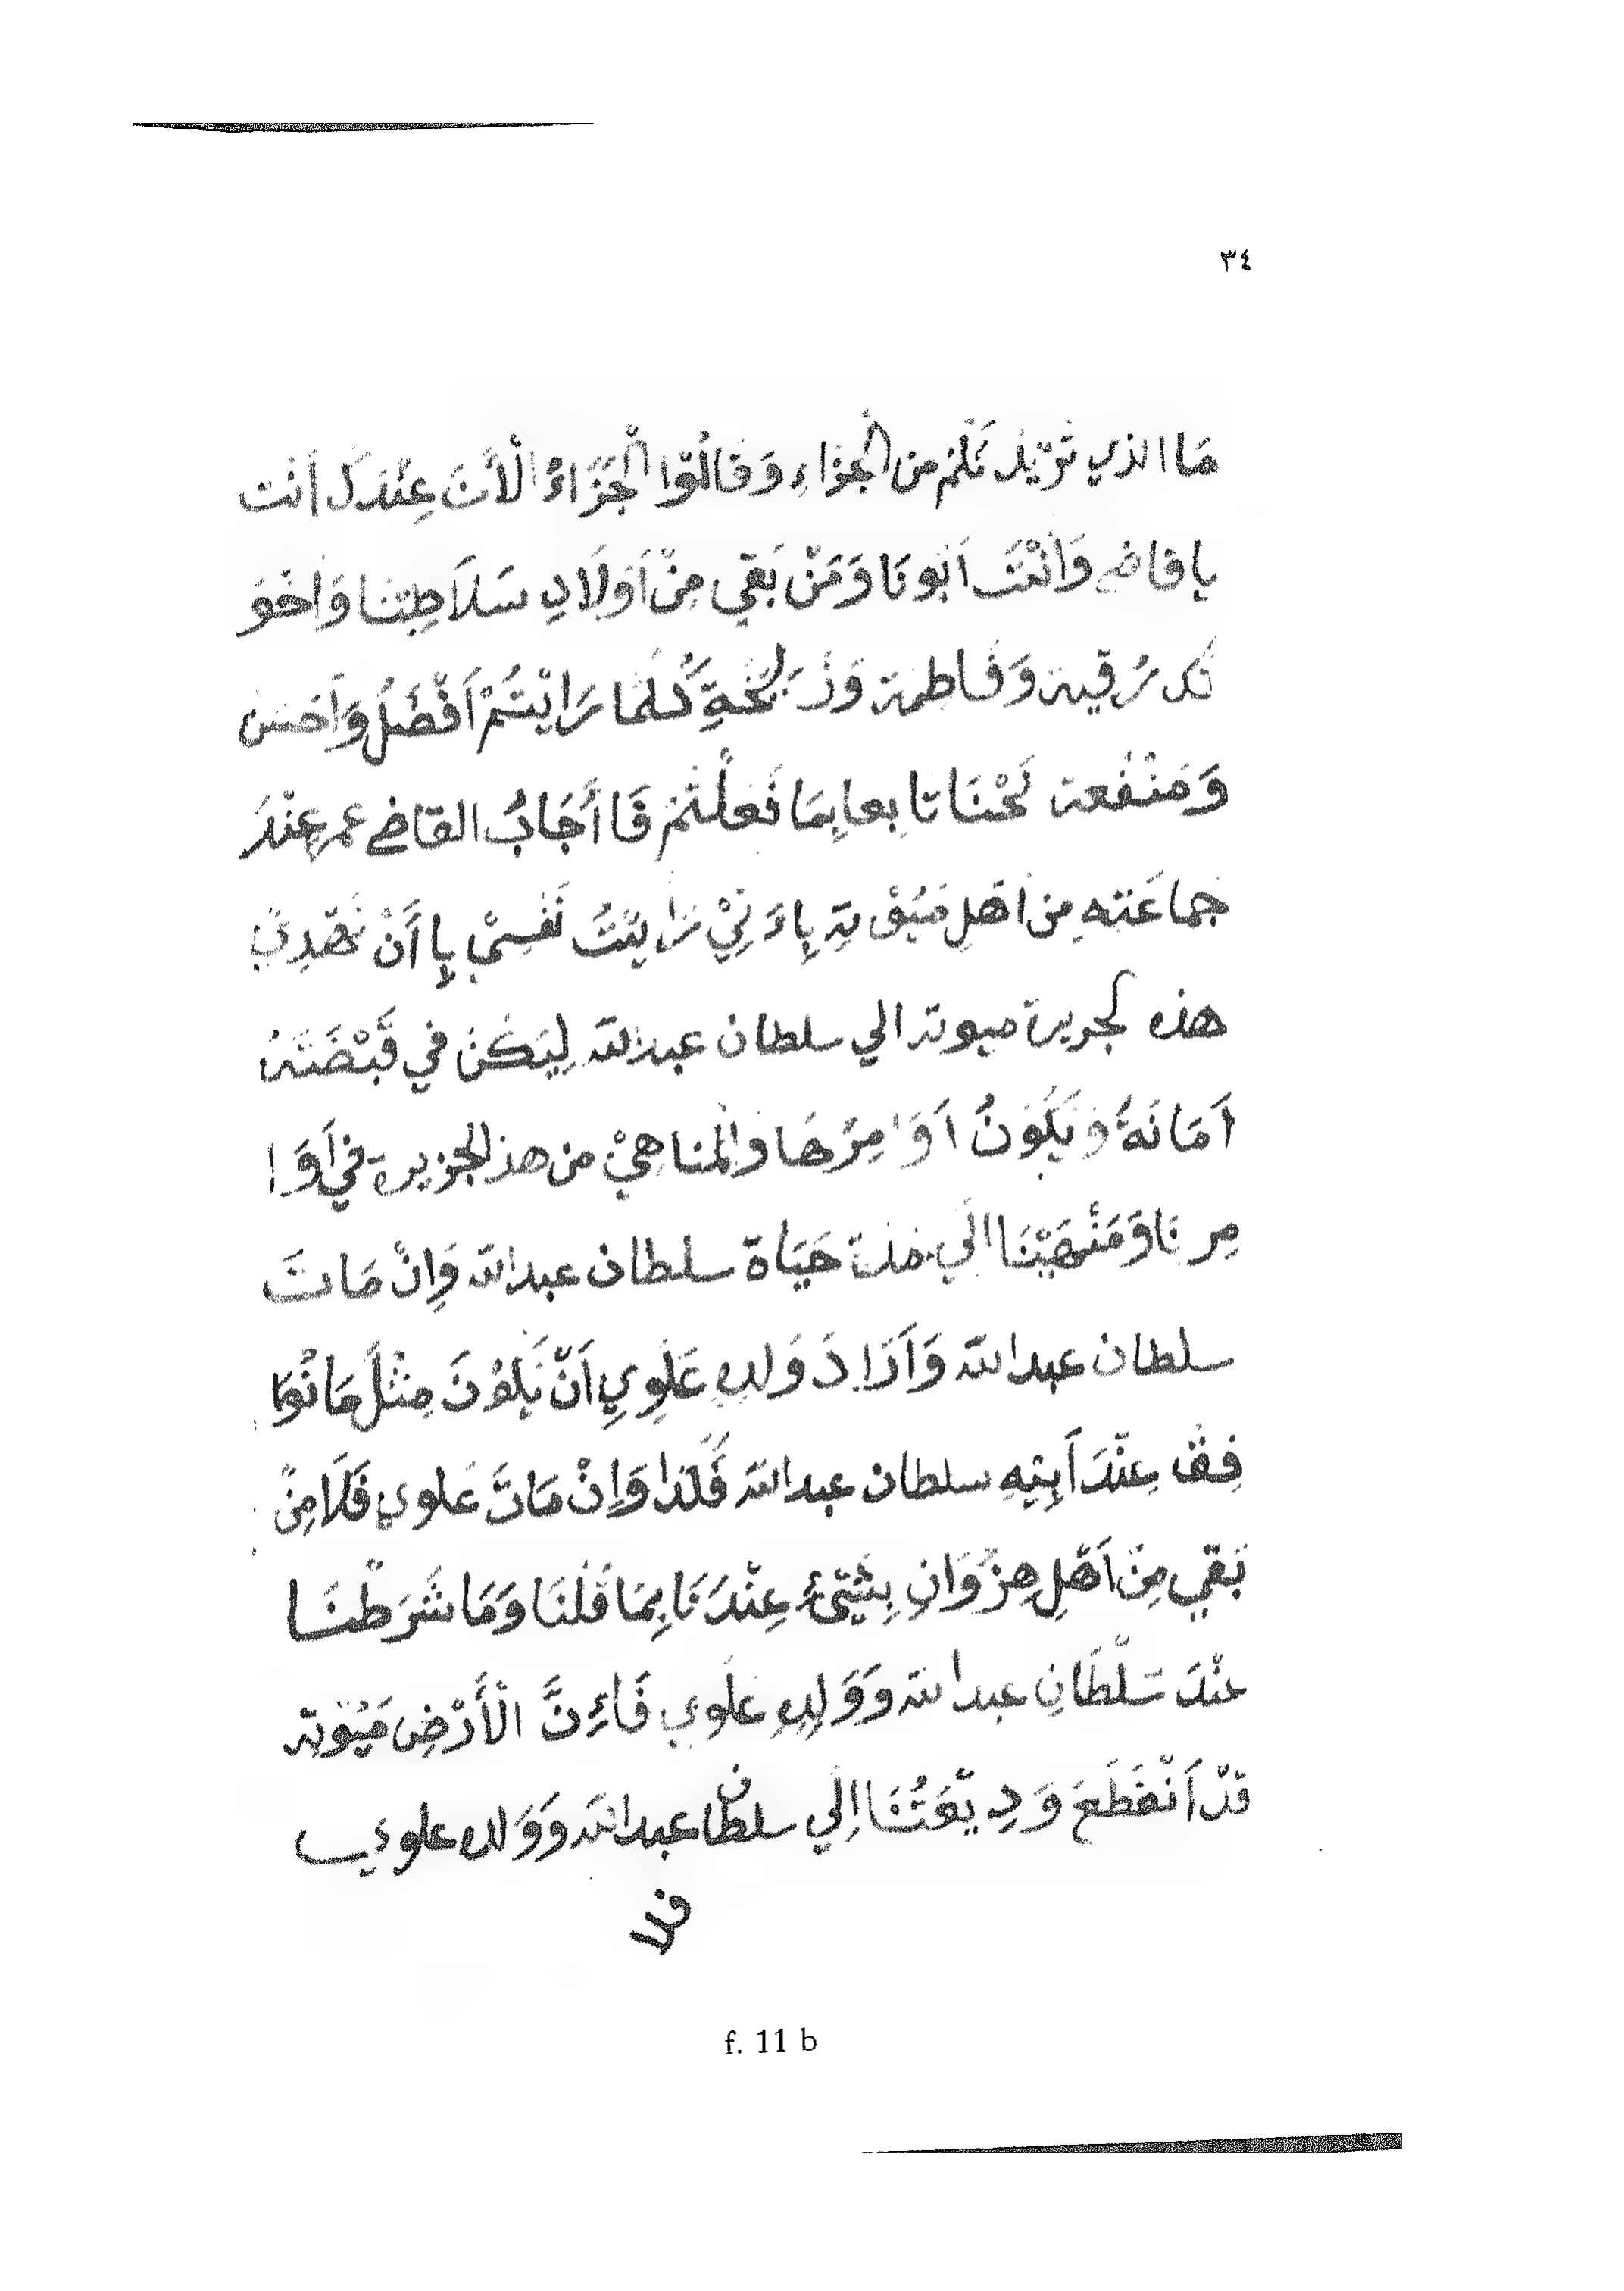 ٣٤
مَا الذي تُرِيْدُ نَكُمْ من الْجزاءِ وَقَالُوْا الْجَزَاءُ الْأَنَ عِنْدَكَ أَنْت
يا قاضي وَأَنْتَ اَبُونَا وَمَنْ بَقي مِنْ اَوَلَادِ سَلَاطِننا وَاَخَوَ
تك رُقية وَفَاطِمة وَزُلَيْخَةِ كُلَّما رَايْتُمْ اَفْضَلُ وَاَحْسَن
وَمَنْفَعة نَحْنَا تابعا بِمَا فَعَلْتُمْ فَا أَجَابُ القاضي عمر عِنْدَ
جماعَتهِ مِن اَهْلِ مَيُوْتِة بِاءَنِّيْ رَايْتُ نَفْسِيْ بِاأَنْ نَهْدِيَ
هذه لجريرة ميوتة الي سلطان عبدالله لِيَكُنْ في قَبْضَتَهُ
اَمَانَةُ وَيَكُوْنُ اَوَا مِرُهَا والْمناهِيْ من هذ الجزيرة في اَوَا
مِر نَا وَمَنْهَيْنَا الَي مدة حَيَاة سلطان عبدالله وَاِنْ مَاتَ
سلطان عبدالله وَاَرَادَ وَلدِهِ عَلَوِي اَنْ يَكُوْنَ مِثْلَ مَانُوَا
فِق عِنْدَ اَبِيْهِ سلطان عبدالله فَلَنَا وَاِنْ مَاتَ عَلوي فَلَا مِنْ
بَقي مِنْ اَهْلِ هِنْزُوَانِ بِشَيْئٍ عِنْدَنَا بِمَا قُلْنَا وَمَا شَرَطْنَا
عِنْدَ سَلْطَانِ عبدالله وَوَلدِهِ عَلَوي فَاءِنَّ الْأَرْضِ مَيُوْتِة
قدْ اَنْقَطَعَ وَدِيْعَتُنَا اِلَي سلطان عبدالله وَوَلده علوي
فلا
f. 11 b